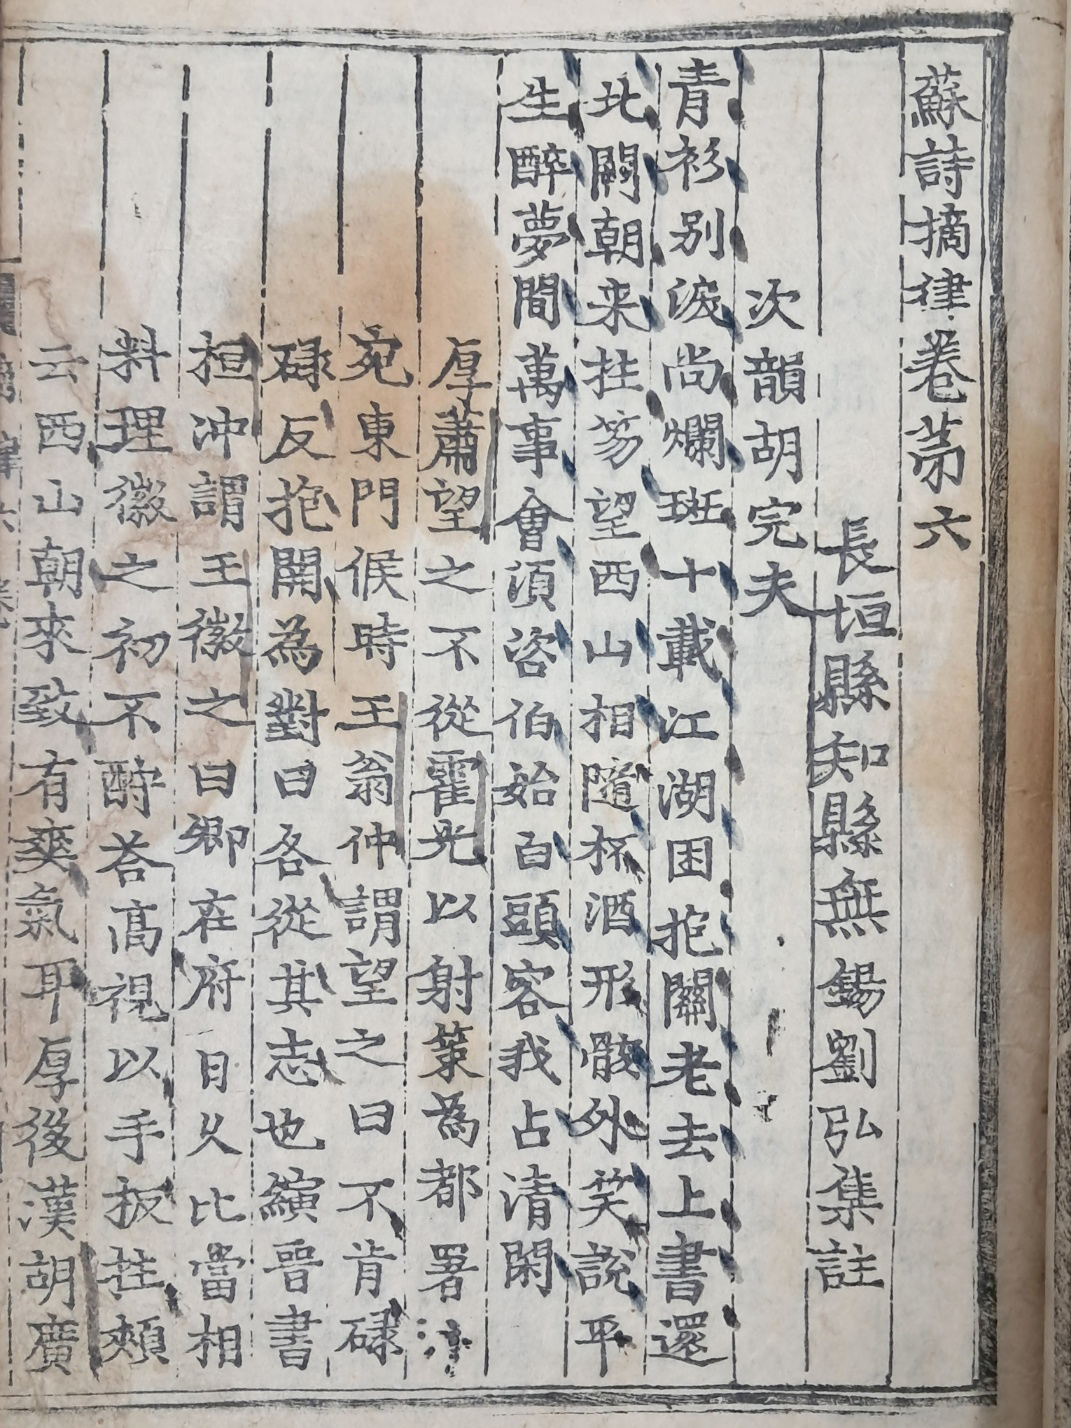 蘇詩摘律卷第六
長垣縣知縣無錫劉弘集註
次韻胡完夫
青衫别淚尚斕斑十載江湖困抱關老去上書還
北闕朝来拄笏望西山相隨杯酒形骸外笑說平
生醉夢間萬事會湏咨伯始白頭容我占清閑
厚蕭望之不從霍光以射策為都署
宛東門候時王翁仲謂望之曰不肯碌
碌反抱開為對曰各從其志也續晉書
桓冲謂王徽之曰卿在府日久比當相
料理徽之初不酧荅髙視以手板拄頰
云西山朝來致有爽氣耳厚後漢胡廣